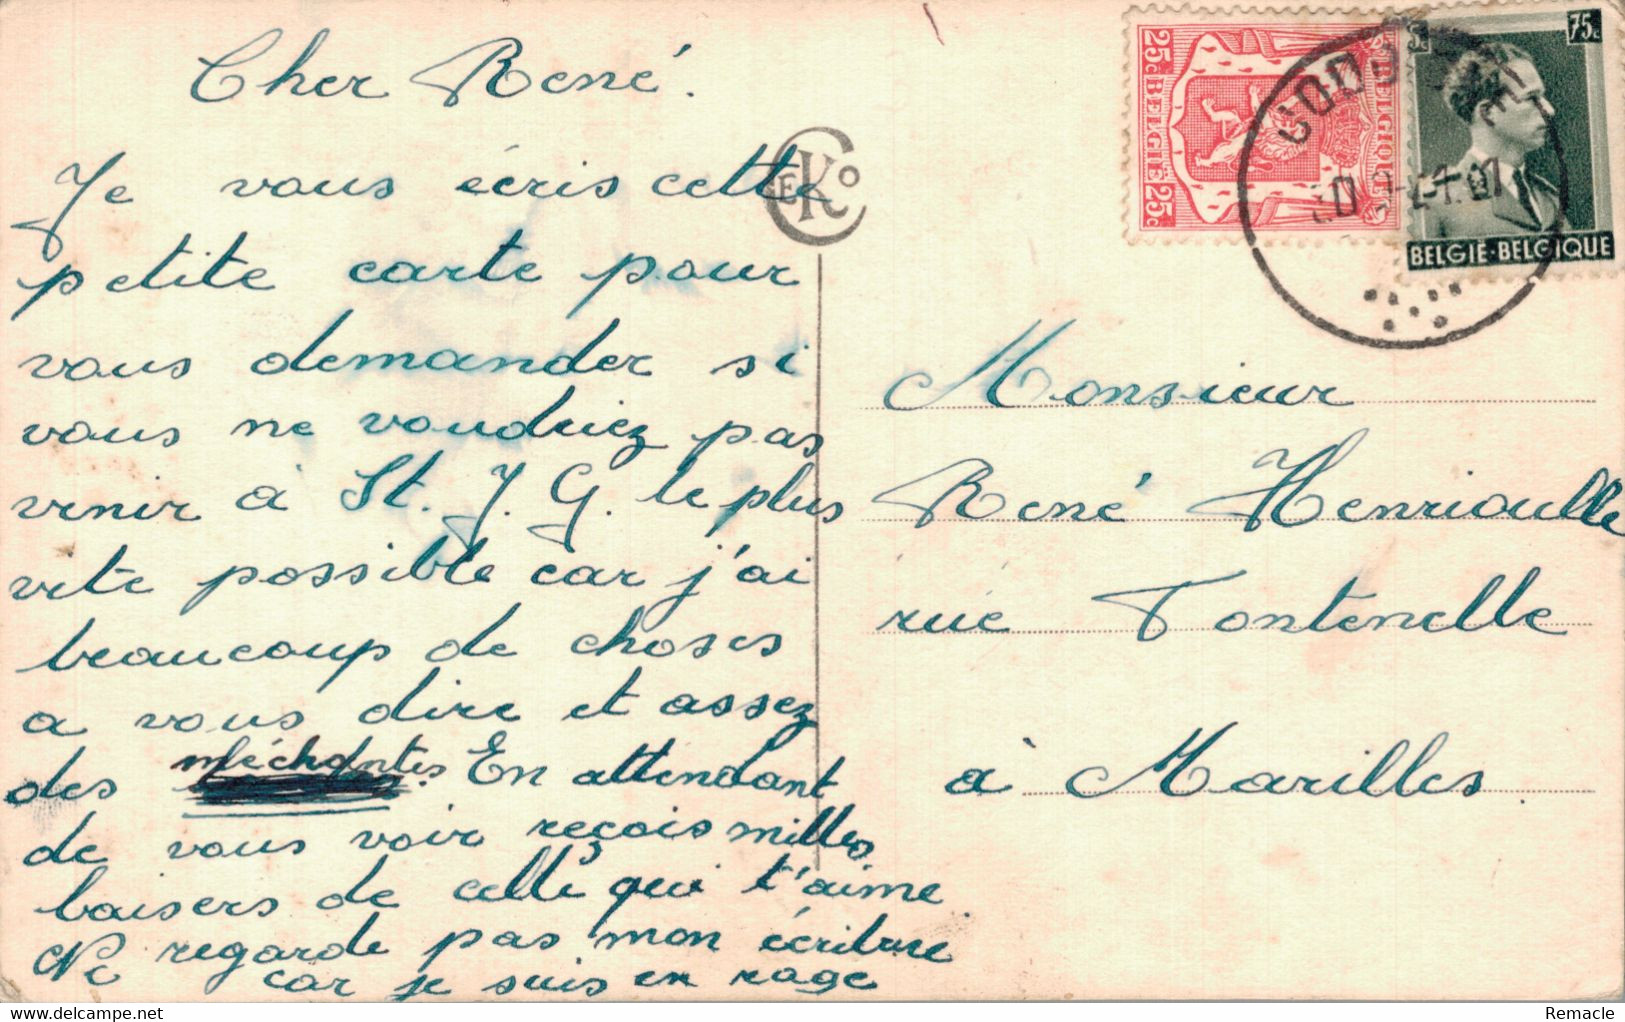 Cher René.
Je vous écris cette
petite carte pour
vous demander si
vous ne voudriez pas
venir à St. J. G. le plus
vite possible car j'ai
beaucoup de choses
a vous dire et assez
des méchantes. En attendant
de vous voir reçois milles
baisers de celle qui t'aime
Ne regarde pas mon écriture
car je suis en rage
CEKO
25c BELGIE 25c
BELGIQUE
75c
BELGIE-BELGIQUE
Monsieur
René Henrioulle
rue Fontenelle
à Marilles.
delcampe.net
Remacle